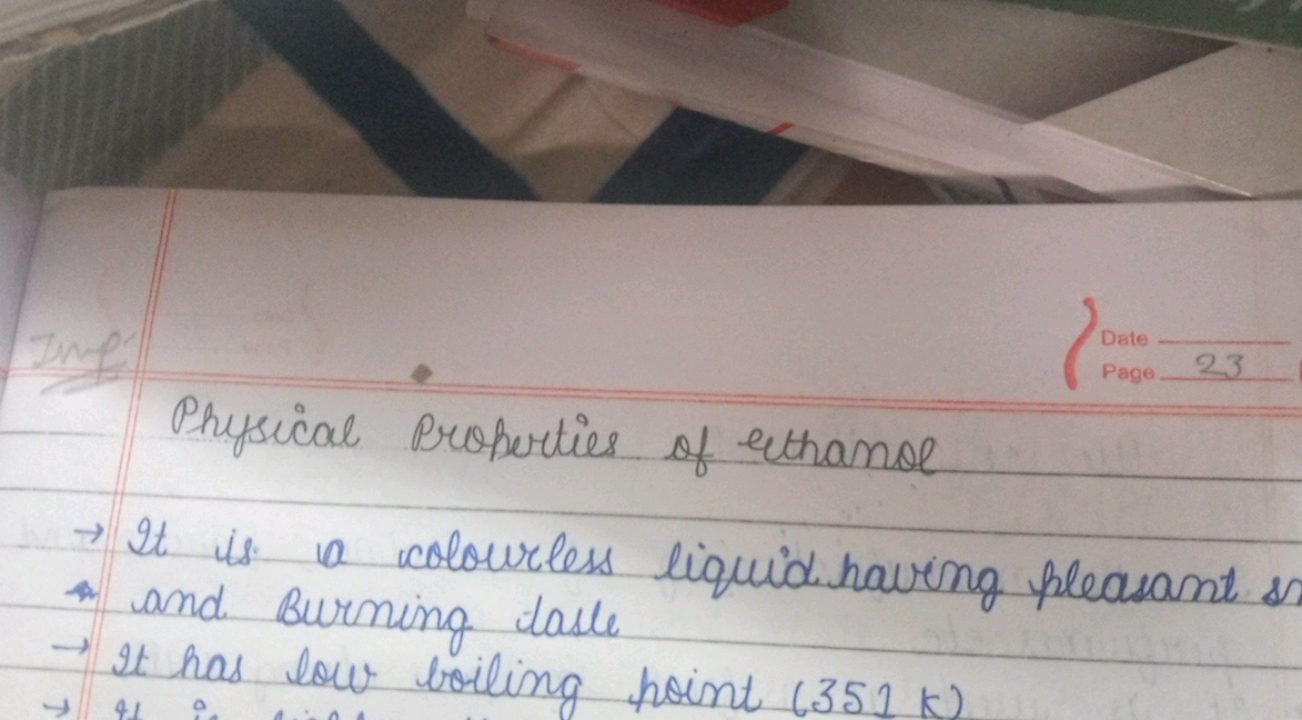 Imp.
Date
Page 23
Physical Properties of ethanol
→ It is a colourless liquid having pleasant
and Burning taste
→ It has low boiling point (351 K)
→ It is